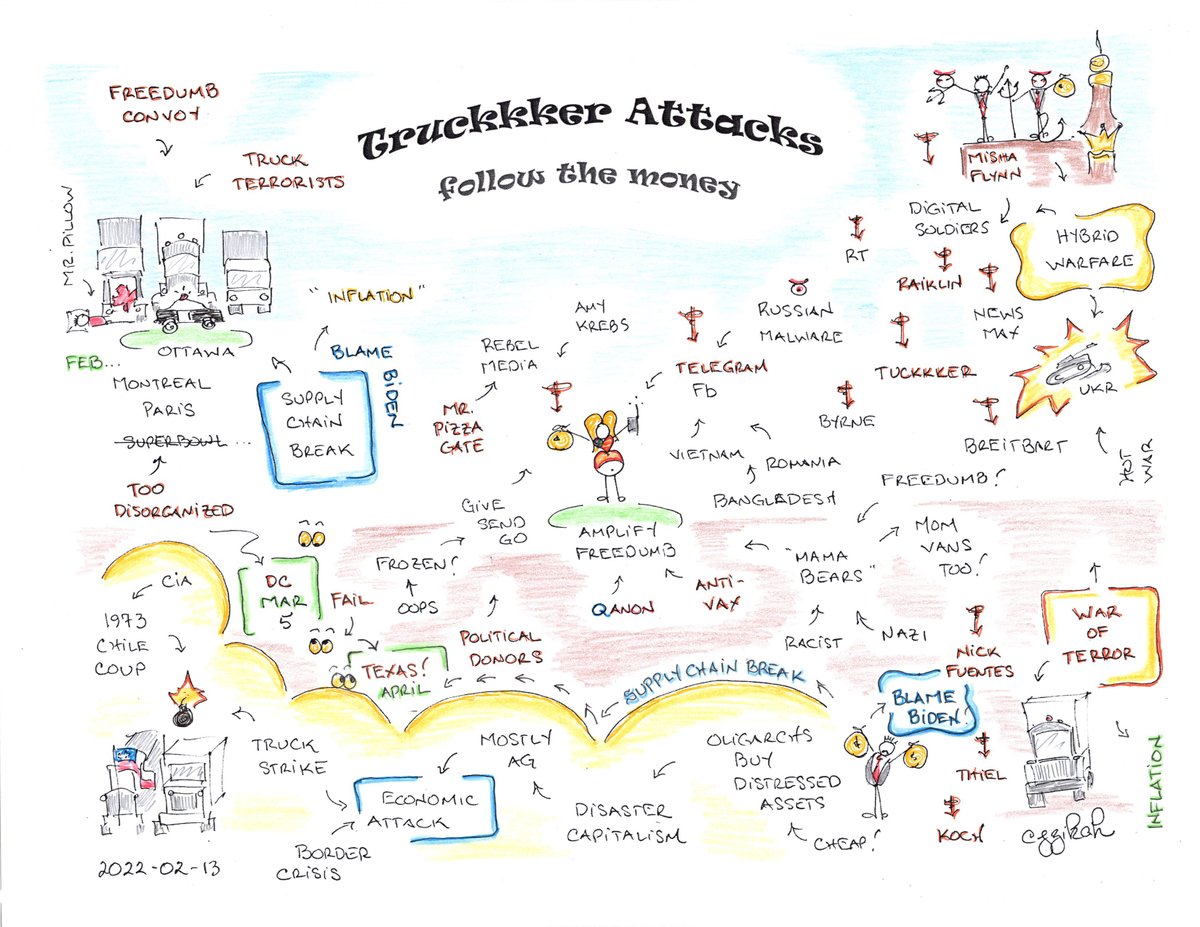 Truckkker Attacks
follow the money
FREEDUMB
CONVOY
TRUCK
TERRORISTS
MR. PILLOW
OTTAWA
FEB...
MONTREAL
PARIS
SUPERBOWL ...
TOO
DISORGANIZED
"INFLATION"
BLAME
BIDEN
SUPPLY
CHAIN
BREAK
AMY
KREBS
REBEL
MEDIA
MR.
PIZZA
GATE
GIVE
SEND
GO
FROZEN!
OOPS
POLITICAL
DONORS
AMPLIFY
FREEDUMB
QANON
ANTI-
VAX
RUSSIAN
MALWARE
TELEGRAM
Fb
VIETNAM
ROMANIA
BANGLADESH
RT
MISHA
FLYNN
DIGITAL
SOLDIERS
HYBRID
WARFARE
RAIKLIN
NEWS
MAX
TUCKKKER
BYRNE
BREITBART
UKR
HOT
WAR
FREEDUMB!
MOM
VANS
TOO!
"MAMA
BEARS"
RACIST
NAZI
NICK
FUENTES
WAR
OF
TERROR
BLAME
BIDEN!
THIEL
KOCH
INFLATION
CIA
1973
CHILE
COUP
DC
MAR
5
FAIL
TEXAS!
APRIL
SUPPLY CHAIN BREAK
TRUCK
STRIKE
ECONOMIC
ATTACK
BORDER
CRISIS
MOSTLY
AG
DISASTER
CAPITALISM
OLIGARCHS
BUY
DISTRESSED
ASSETS
CHEAP!
2022-02-13
eggikah